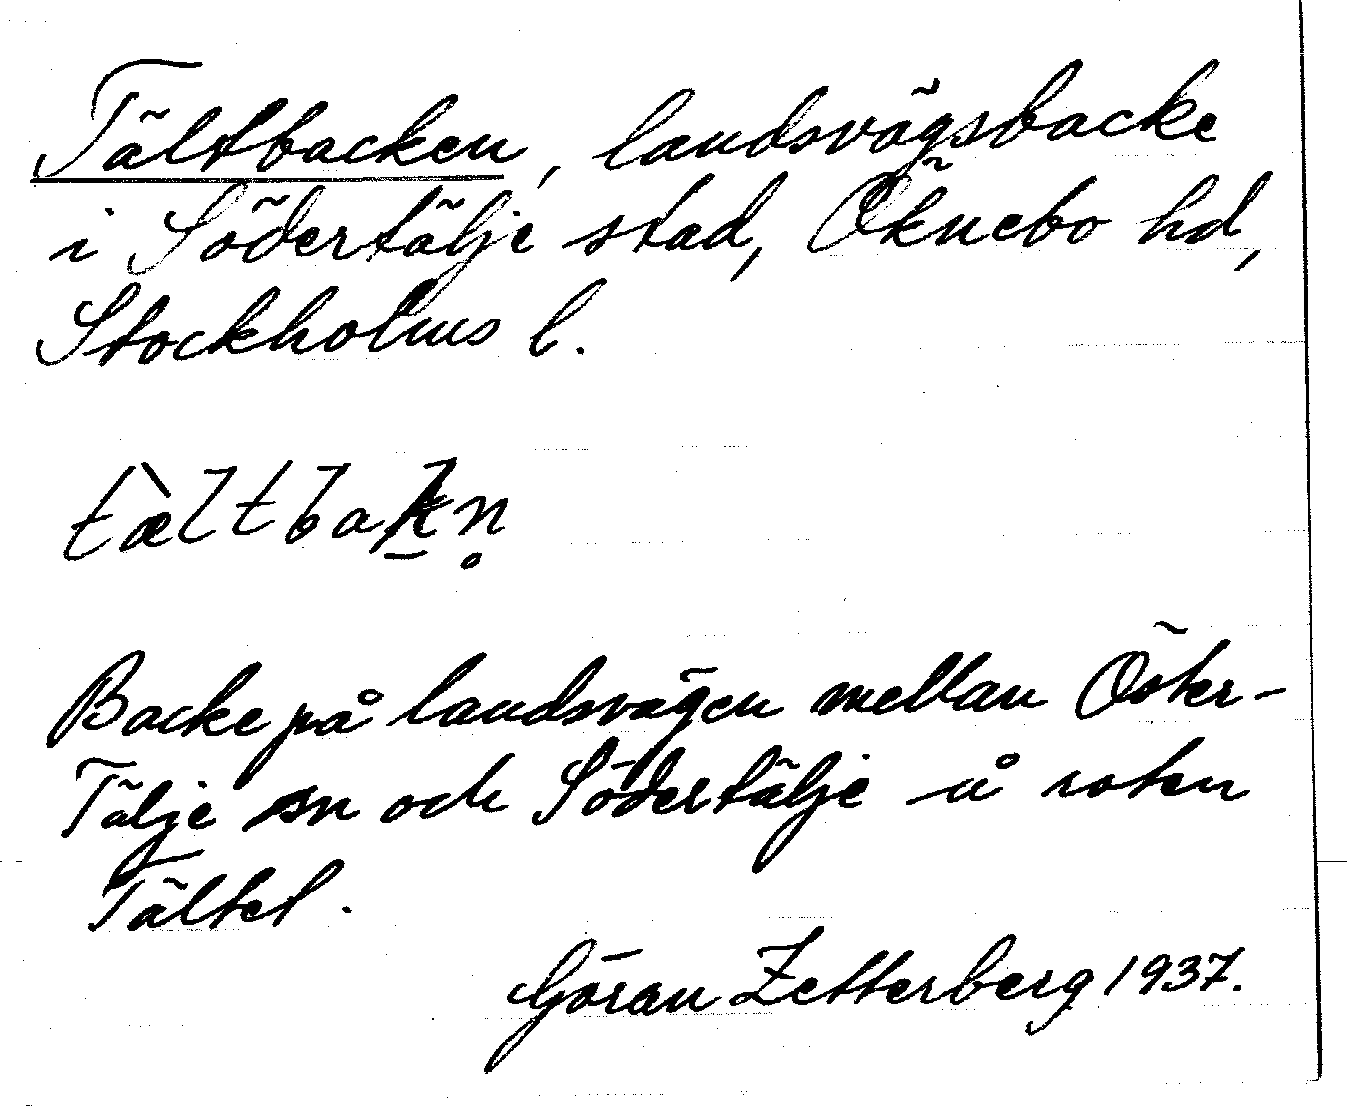 Tältbacken, landsvägsbacke
i Södertälje stad, Öknebo hd,
Stockholms l.
tæ̀ltbak̲n̥
Backe på landsvägen mellan Öster-
Tälje sn och Södertälje å roten
Tältet.
Göran Zetterberg 1937.